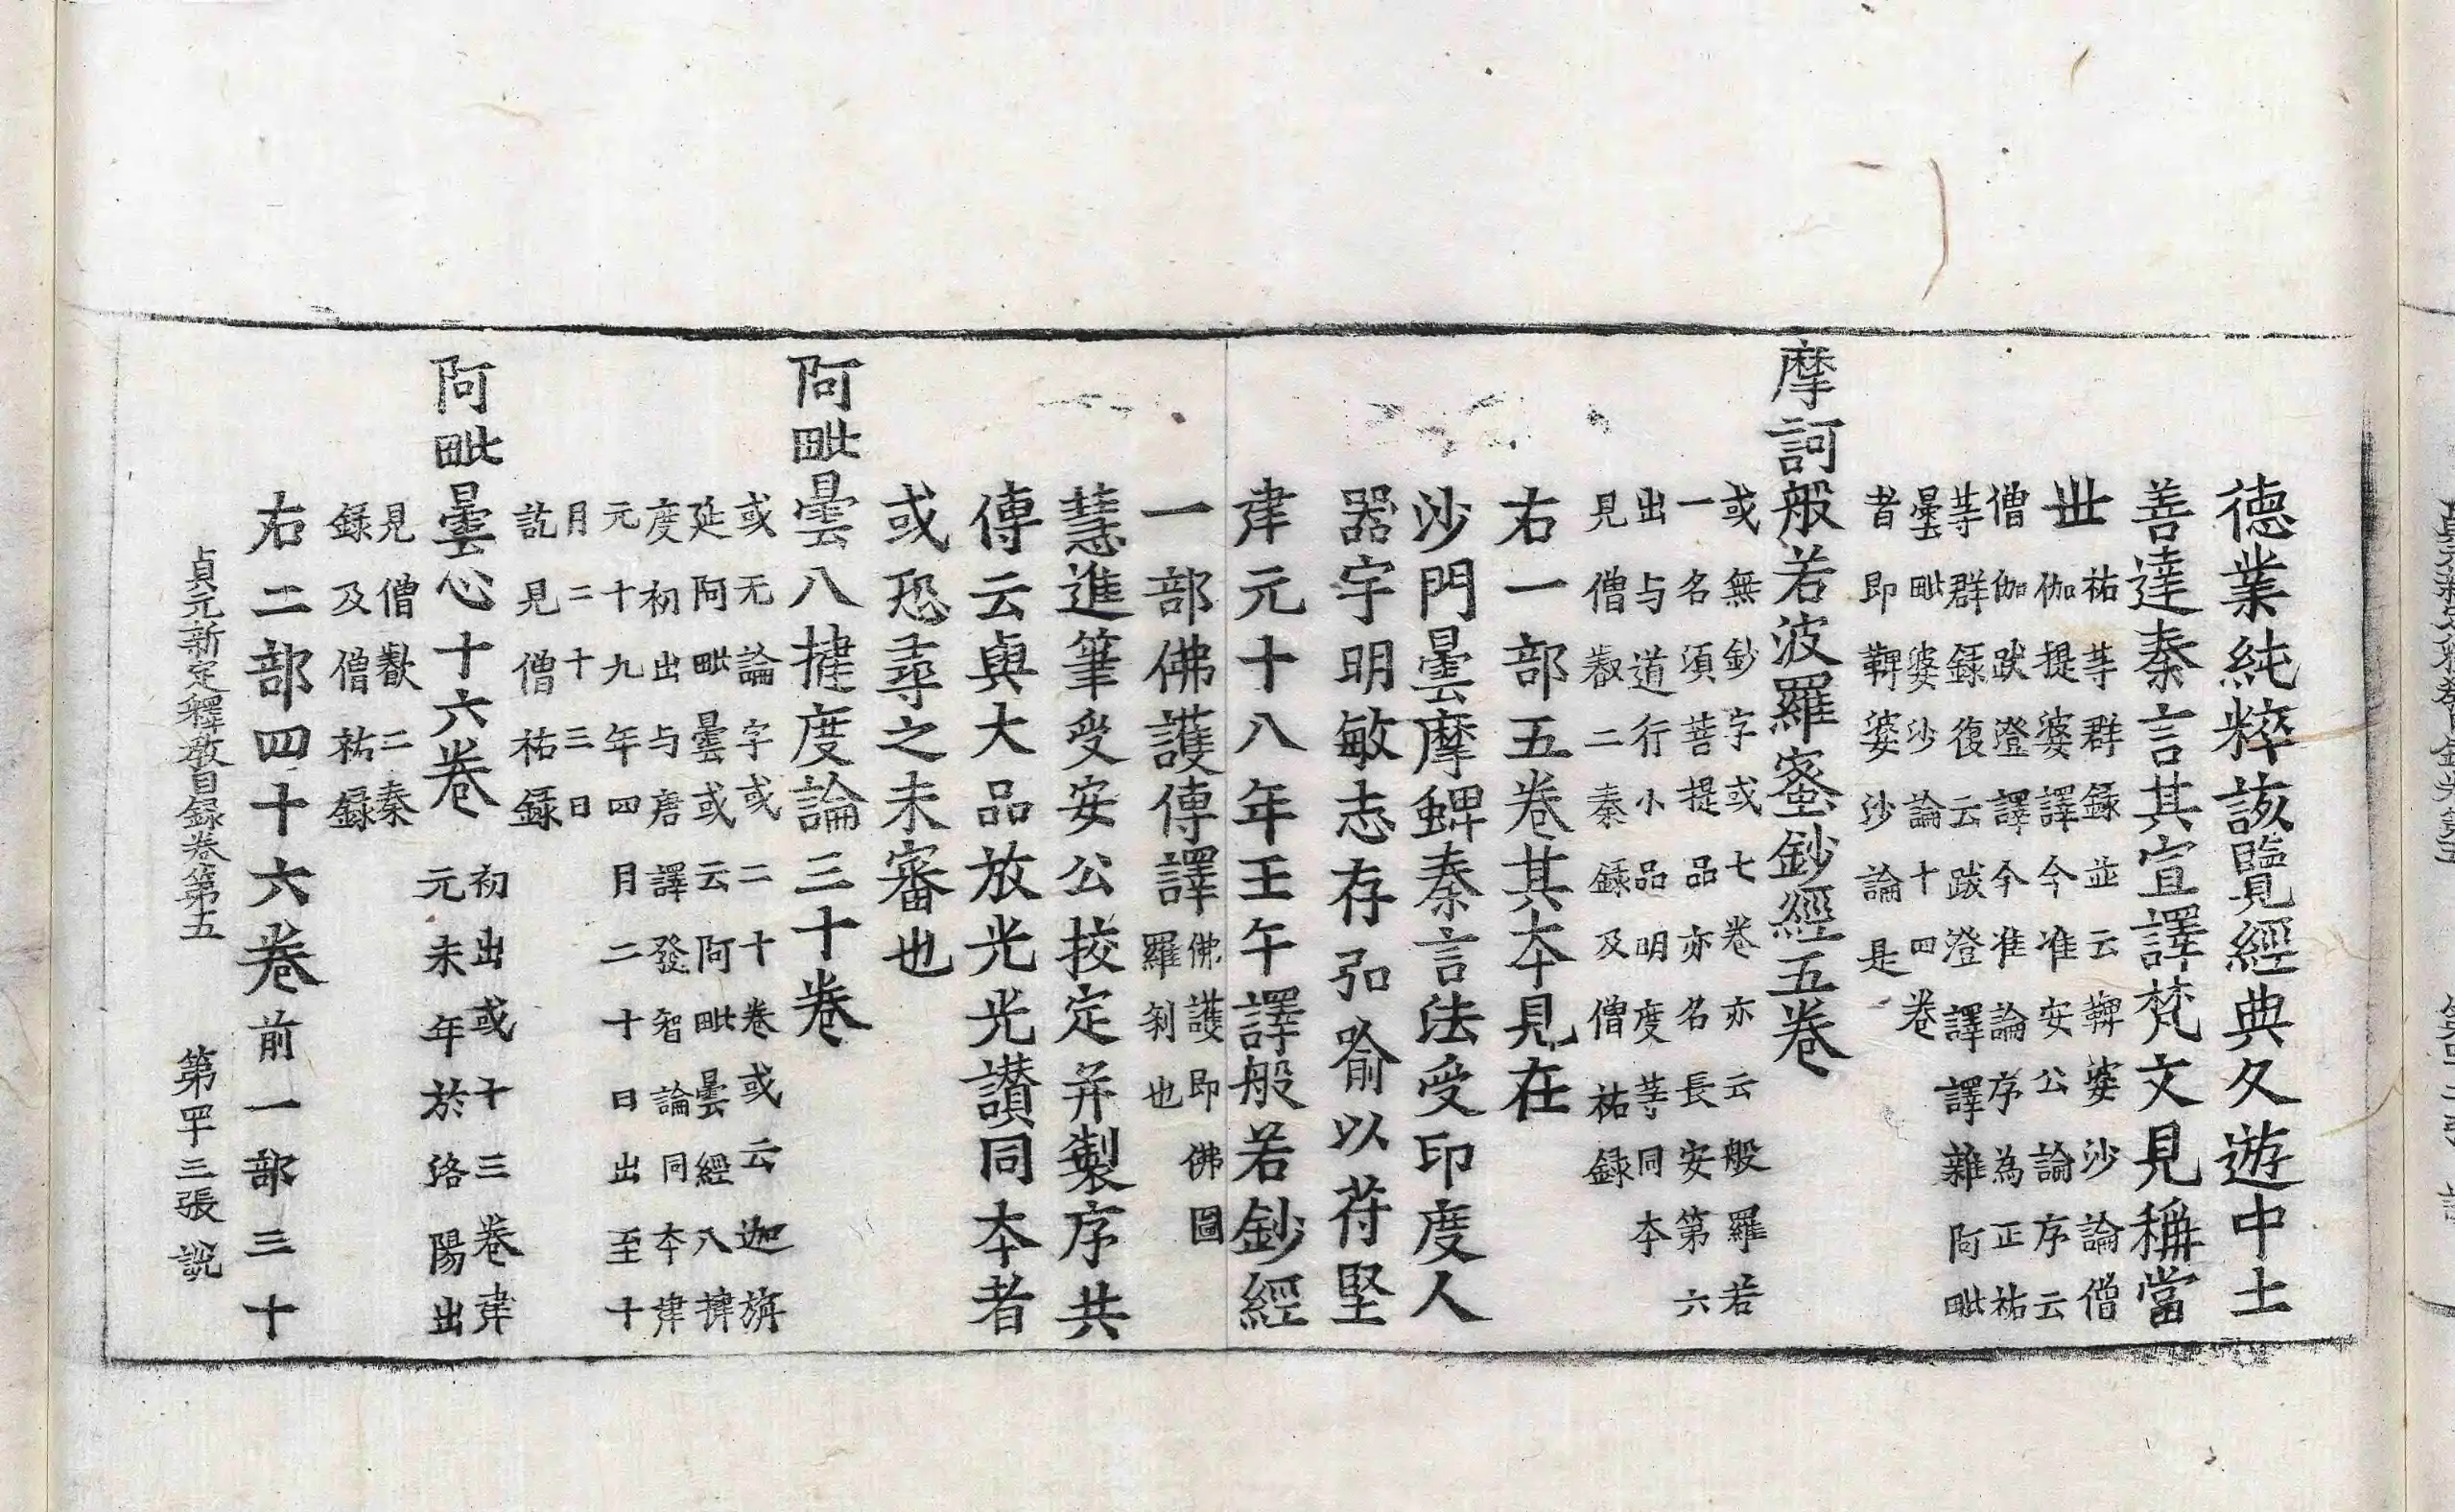 德業純粹該覽經典久遊中土
善達秦言其宣譯梵文見稱當
世祐等群録並云鞞婆沙論僧
伽提婆譯今准安公論序云
僧伽跋澄譯今准論序為正祐
等群録復云跋澄譯譯雜阿毗
曇毗婆沙論十四卷
者即鞞婆沙論是
摩訶般若波羅蜜鈔經五卷
或無鈔字或七卷亦云般羅若
一名須菩提品亦名長安第六
出与道行小品明度等同本
見僧叡二秦録及僧祐録
右一部五卷其本見在
沙門曇摩蜱秦言法受印度人
器宇明敏志存弘喻以苻堅
建元十八年壬午譯般若鈔經
一部佛護傳譯佛護即佛圖
羅剎也
慧進筆受安公挍定并製序共
傳云與大品放光光讃同本者
或恐尋之未審也
阿毗曇八揵度論三十卷
或无論字或二十卷或云迦旃
延阿毗曇或云阿毗曇經八揵
度初出与唐譯發智論同本建
元十九年四月二十日出至十
月二十三日
訖見僧祐録
阿毗曇心十六卷初出或十三卷建
元末年於洛陽出
見僧叡二秦
録及僧祐録
右二部四十六卷前一部三十
貞元新定釋教目録卷第五 第四十三張 說